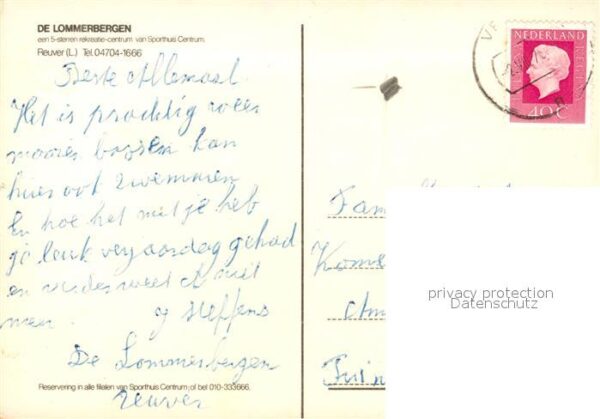 DE LOMMERBERGEN
een 5-sterren rekreatie-centrum van Sporthuis Centrum.
Reuver (L.) Tel. 04704-1666
Beste Allemaal
Het is prachtig weer
mooie bossen kan
hier ook zwemmen
En hoe het met je heb
je leuk verjaardag gehad
en verder weet ik niet
meer.
De Lommerbergen
Reuver
Reservering in alle filialen van Sporthuis Centrum; of bel 010-333666.
NEDERLAND
40c
Fam
privacy protection
Datenschutz